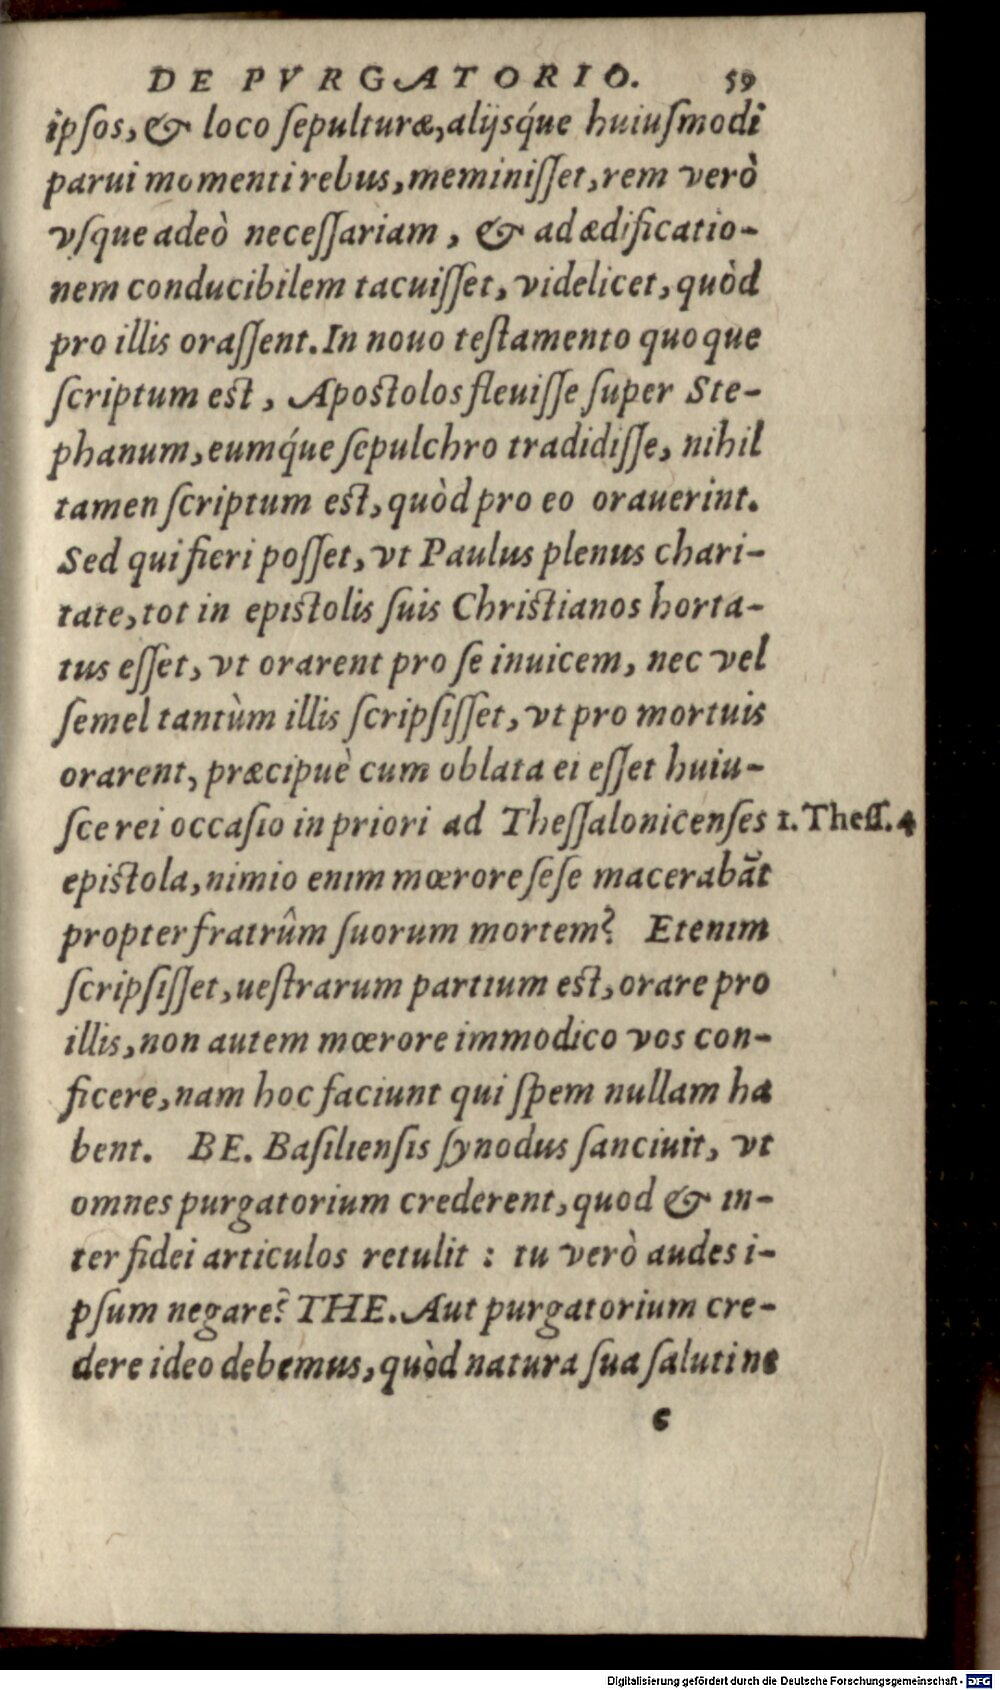 DE PVRGATORIO. 59
ipſos, & loco ſepulturæ, alijsq́ue huiuſmodi
parui momenti rebus, meminiſſet, rem verò
vſque adeò neceſſariam, & ad ædificatio-
nem conducibilem tacuiſſet, videlicet, quòd
pro illis oraſſent. In nouo teſtamento quoque
ſcriptum eſt, Apoſtolos fleuiſſe ſuper Ste-
phanum, eumq́ue ſepulchro tradidiſſe, nihil
tamen ſcriptum eſt, quòd pro eo orauerint.
Sed qui fieri poſſet, vt Paulus plenus chari-
tate, tot in epiſtolis ſuis Chriſtianos horta-
tus eſſet, vt orarent pro ſe inuicem, nec vel
ſemel tantùm illis ſcripſiſſet, vt pro mortuis
orarent, præcipuè cum oblata ei eſſet huiu-
ſce rei occaſio in priori ad Theſſalonicenſes 1. Theſſ. 4
epiſtola, nimio enim mœrore ſeſe macerabāt
propter fratrûm ſuorum mortem? Etenim
ſcripſiſſet, ueſtrarum partium eſt, orare pro
illis, non autem mœrore immodico vos con-
ficere, nam hoc faciunt qui ſpem nullam ha
bent. BE. Baſilienſis ſynodus ſanciuit, vt
omnes purgatorium crederent, quod & in-
ter fidei articulos retulit : tu verò audes i-
pſum negare? THE. Aut purgatorium cre-
dere ideo debemus, quòd natura ſua ſaluti ne
c
Digitalisierung gefördert durch die Deutsche Forschungsgemeinschaft - DFG